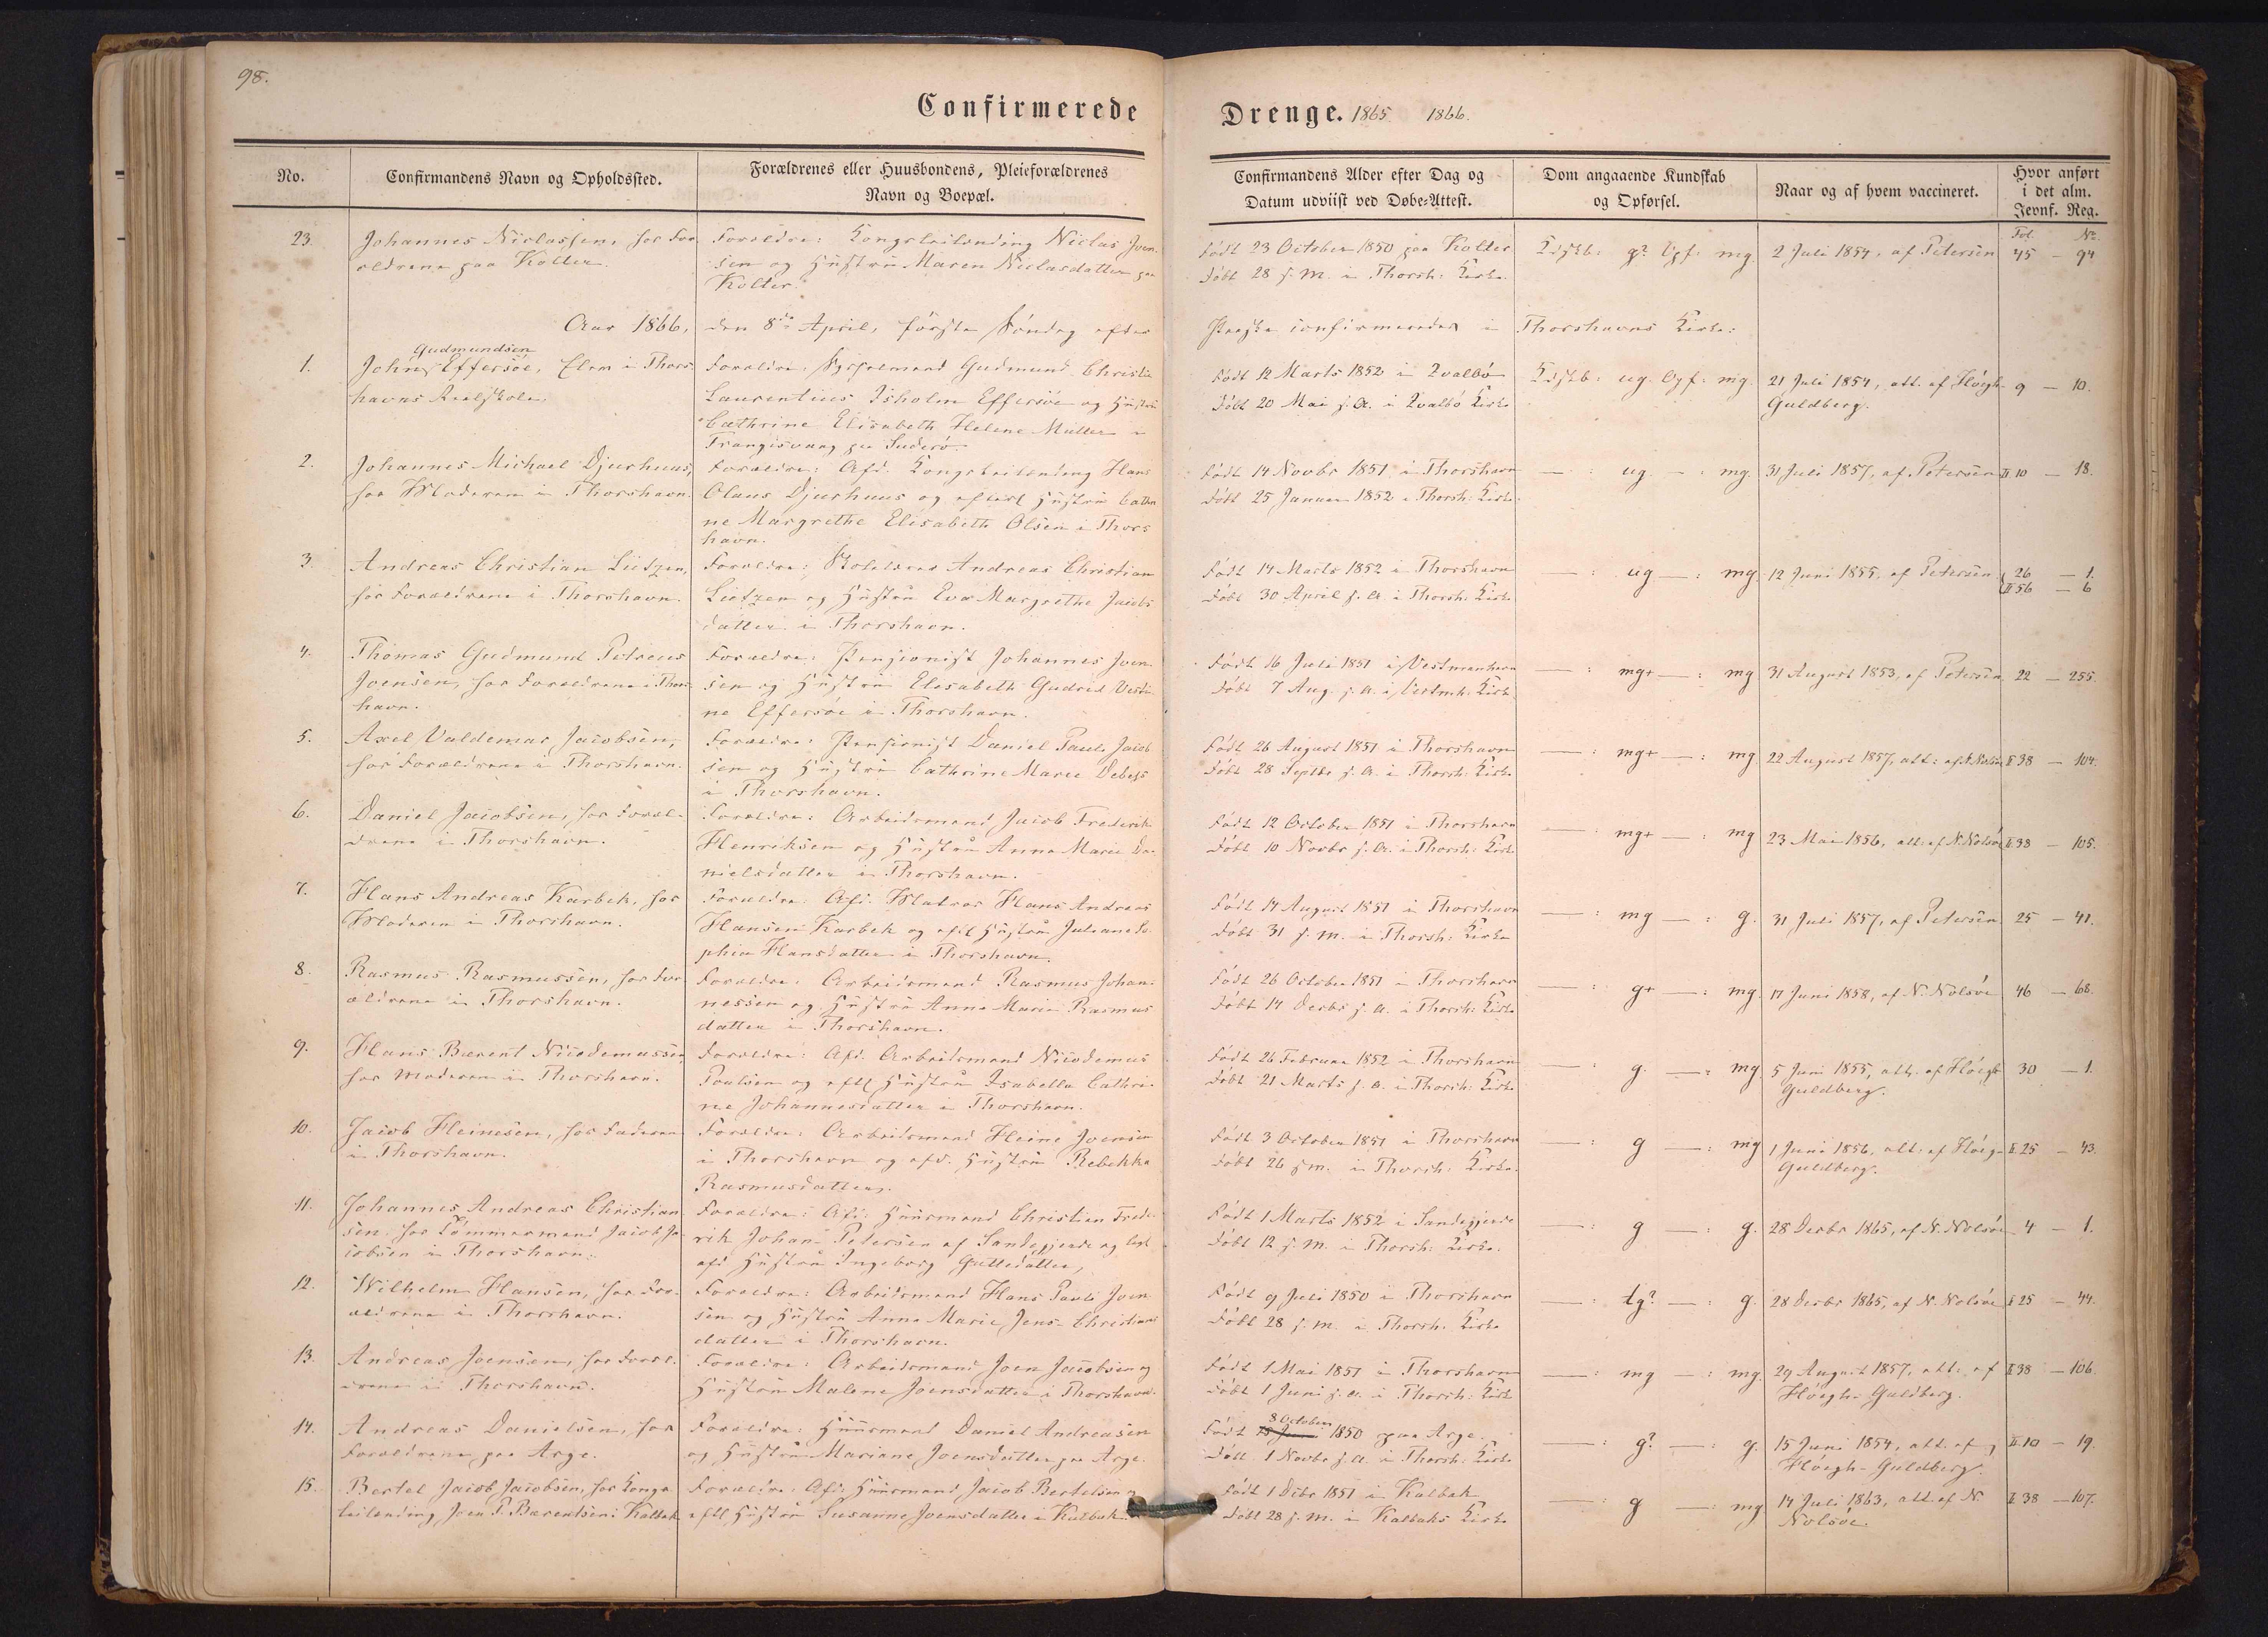 98.
Confirmerede
No.
Confirmandens Navn og Opholdssted.
Forældrenes eller Huusbondens, Pleieforældrenes
Navn og Boepæl.
23.
Johannes Niclassen, hos For
ældrene paa Kolter.
Forældre: Kongsleilending Niclas Joen
sen og Hustru Maren Niclasdatter paa
Kolter.
Aar 1866, den 8de April, første Søndag efter
1.
Gudmundsen
Johns Effersöe, Elev i Thors
havns Realskole.
Forældre: Sysselmand Gudmund Christi
Laurentius Isholm Effersöe og Hustru
Cathrine Elisabeth Helene Müller i
Trangisvaag paa Suderö.
2.
Johannes Michael Djurhuus,
hos Moderen i Thorshavn.
Forældre: Afd. Kongsleilending Hans
Olaus Djurhuus og efterl. Hustru Cathri
ne Margrethe Elisabeth Olsen i Thors
havn.
3.
Andreas Christian Lützen,
hos Forældrene i Thorshavn.
Forældre: Andreas Christian
Lützen og Hustru Eva Margrethe Jacobs
datter i Thorshavn.
4.
Thomas Gudmund Petreus
Joensen, hos Forældrene i Thors
havn.
Forældre: Pensionist Johannes Joen
sen og Hustru Elisabeth Gudrid Vesti
ne Effersöe i Thorshavn.
5.
Axel Valdemar Jacobsen,
hos Forældrene i Thorshavn.
Forældre: Pensionist Daniel Pauli Jacob
sen og Hustru Cathrine Marie Debes
i Thorshavn.
6.
Daniel Jacobsen, hos Foræl-
drene i Thorshavn.
Forældre: Arbeidsmand Jacob Frederik
Henriksen og Hustru Anna Marie Da-
nielsdatter i Thorshavn.
7.
Hans Andreas Karbek, hos
Moderen i Thorshavn.
Forældre: Afd. Matros Hans Andreas
Hansen Karbek og eftl Hustru Juliane So
phie Hansdatter i Thorshavn.
8.
Rasmus Rasmussen, hos For
ældrene i Thorshavn.
Forældre: Arbeidsmand Rasmus Johan-
nessen og Hustru Anna Marie Rasmus
datter i Thorshavn.
9.
Hans Bærent Nicodemussen
hos Moderen i Thorshavn.
Forældre: Afd. Arbeidsmand Nicodemus
Poulsen og eftl Hustru Isabella Cathri-
ne Johannesdatter i Thorshavn.
10.
Jacob Heinesen, hos Faderen
i Thorshavn.
Forældre: Arbeidsmand Heine Joensen
i Thorshavn og afd. Hustru Rebekka
Rasmusdatter.
11.
Johannes Andreas Christian
sen hos Tömmermand Jacob Ja
cobsen i Thorshavn.
Forældre: Afd: Huusmand Christian Frede-
rik Johan Petersen af Sandegjerde og
afd Hustru Ingeborg Guttesdatter,
12.
Wilhelm Hansen, hos For-
ældrene i Thorshavn.
Forældre: Arbeidsmand Hans Pauli Joen
sen og Hustru Anna Marie Jens-Christians
datter i Thorshavn.
13.
Andreas Joensen, hos Foræl-
drene i Thorshavn.
Forældre: Arbeidsmand Joen Jacobsen og
Hustru Malene Joensdatter i Thorshavn.
14.
Andreas Danielsen, hos
Forældrene paa Arge.
Forældre: Huusmand Daniel Andreasen
og Hustru Mariane Joensdatter paa Arge.
15.
Bertel Jacob Jacobsen, hos Kongs
leilending Joen P. Bærentsen i Kalbak
Forældre: Afd: Huusmand Jacob Bertelsen og
eftl Hustru Susanne Joensdatter i Kalbak.
Drenge. 1865 1866.
Confirmandens Alder efter Dag og
Datum udviist ved Døbe-Attest.
Dom angaaende Kundskab
og Opførsel.
Naar og af hvem vaccineret.
Hvor anført
i det alm.
Jevnf. Reg.
Fol. No.
Født 23 October 1850 paa Kolter
Døbt 28 s. M. i Thorsh: Kirke.
Kdskb: g? Opf: mg. 2 Juli 1854, af Petersen 45 - 94
Paaske confirmerede i Thorshavns Kirke:
Født 12 Marts 1852 i Qvalbö
Døbt 20 Mai s. A. i Qvalbö Kirke
Kdskb: ug. Opf: mg. 21 Juli 1854, att. af Höegh- 9 - 10.
Guldberg.
Født 14 Novbr 1851 i Thorshavn
Døbt 25 Januar 1852 i Thorsh: Kirke.
— : ug. — : mg. 31 Juli 1857, af Petersen II 10 - 18.
Født 14 Marts 1852 i Thorshavn
Døbt 30 April s. A. i Thorsh: Kirke
— : ug — : mg. 12 Juni 1855, af Petersen 26 - 1.
II 56 - 6
Født 16 Juli 1851 i Vestmanhavn
Døbt 7 Aug. s. A. i Vestmh. Kirke
— : mg+ — : mg 31 August 1853, af Petersen 22 - 255.
Født 26 August 1851 i Thorshavn
Døbt 28 Septbr s. A. i Thorsh: Kirke
— : mg+ — : mg. 22 August 1857, att: af N. Nolsöe II 38 - 104.
Født 12 October 1851 i Thorshavn
Døbt 10 Novbr s. A. i Thorsh: Kirke
— : mg+ — : mg 23 Mai 1856, att: af N. Nolsöe II 38 - 105.
Født 14 August 1851 i Thorshavn
Døbt 31 s. M. i Thorsh: Kirke
— : mg — : g. 31 Juli 1857, af Petersen 25 - 41.
Født 26 October 1851 i Thorshavn
Døbt 14 Decbr s. A. i Thorsh: Kirke
— : g+ — : mg. 17 Juni 1858, af N. Nolsöe 46 - 68.
Født 26 Februar 1852 i Thorshavn
Døbt 21 Marts s. A. i Thorsh: Kirke
— : g. — : mg. 5 Juni 1855, att. af Höegh 30 - 1.
Guldberg.
Født 3 October 1851 i Thorshavn
Døbt 26 s M. i Thorsh: Kirke.
— : g — : mg 1 Juni 1856, att: af Höeg- II 25 - 43.
Guldberg.
Født 1 Marts 1852 i Sandegjerde
Døbt 12 s. M. i Thorsh: Kirke.
— : g — : g. 28 Decbr 1865, af N. Nolsöe 4 - 1.
Født 9 Juli 1850 i Thorshavn
Døbt 28 s. M. i Thorsh. Kirke
— : tg? — : g. 28 Decbr 1865, af N. Nolsöe II 25 - 44.
Født 1 Mai 1851 i Thorshavn
Døbt 1 Juni s. A. i Thorsh: Kirke
— : mg — : mg. 29 August 1857, att: af II 38 - 106.
Höegh-Guldberg.
8 October
Født 1850 paa Arge.
Døbt 1 Novbr s. A. i Thorsh: Kirke
— : g? — : g. 15 Juni 1854, att. af II 10 - 19.
Höegh-Guldberg.
Født 1 Decbr 1851 i Kalbak
Døbt 28 s. M. i Kalbaks Kirke
— : g — : mg 14 Juli 1863, att. af N. II 38 - 107.
Nolsöe.